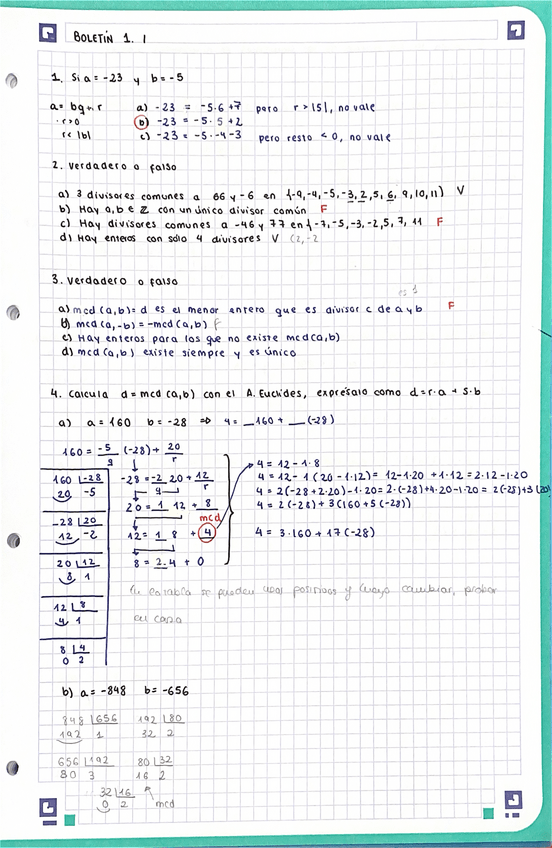 BOLETÍN 1. 1
1. Si a = -23 y b = -5
a = bq + r a) -23 = -5·6 +7 pero r > |5|, no vale
· r > 0 b) -23 = -5·5 + 2
r < |b| c) -23 = -5·-4-3 pero resto < 0, no vale
2. Verdadero o falso
a) 3 divisores comunes a 66 y -6 en {-9, -4, -5, -3, 2, 5, 6, 9, 10, 11} V
b) Hay a, b ∈ Z con un único divisor común F
c) Hay divisores comunes a -46 y 77 en {-7, -5, -3, -2, 5, 7, 11 F
d) Hay enteros con sólo 4 divisores V (2, -2
3. Verdadero o falso
es 1
a) mcd (a, b) = d es el menor entero que es divisor c de a y b F
b) mcd (a, -b) = -mcd (a, b) F
c) Hay enteros para los que no existe mcd (a, b)
d) mcd (a, b) existe siempre y es único
4. Calcula d = mcd (a, b) con el A. Euclides, exprésalo como d = r·a + s·b
a) a = 160 b = -28 ⇒ 4 = __160 + __(-28)
160 = -5 (-28) + 20
q r
160 |-28
20 -5
-28 |20
12 -2
20 |12
8 1
12 |8
4 1
8 |4
0 2
-28 = -2 20 + 12
q r
20 = 1 12 + 8
mcd
12 = 1 8 + 4
8 = 2·4 + 0
4 = 12 - 1·8
4 = 12 - 1 (20 - 1·12) = 12 - 1·20 + 1·12 = 2·12 - 1·20
4 = 2(-28 + 2·20) - 1·20 = 2·(-28) + 4·20 - 1·20 = 2(-28) + 3(20)
4 = 2(-28) + 3(160 + 5(-28))
4 = 3·160 + 17(-28)
se pueden usar positivos y luego cambiar, probar
en casa
b) a = -848 b = -656
848 |656 192 |80
192 1 32 2
656 |192 80 |32
80 3 16 2
32 |16
0 2 mcd